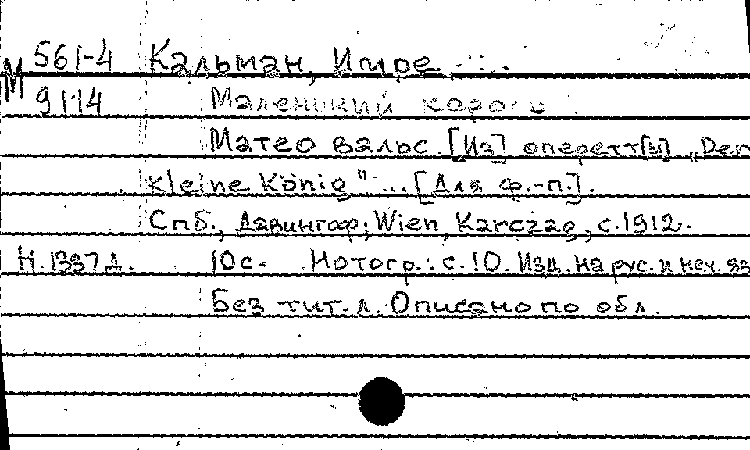 М 561-4 Кальман, Имре ...
9114 Маленький король
Матео вальс. [Из] оперетт[ы] „Der
kleine König" ... [Для ф.-п.].
Спб., Давингоф; Wien, Karczag, с.1912.
Н.1337д. 10с. Нотогр.: с.10. Изд. на рус. и неч. яз
Без тит. л. Описано по обл.